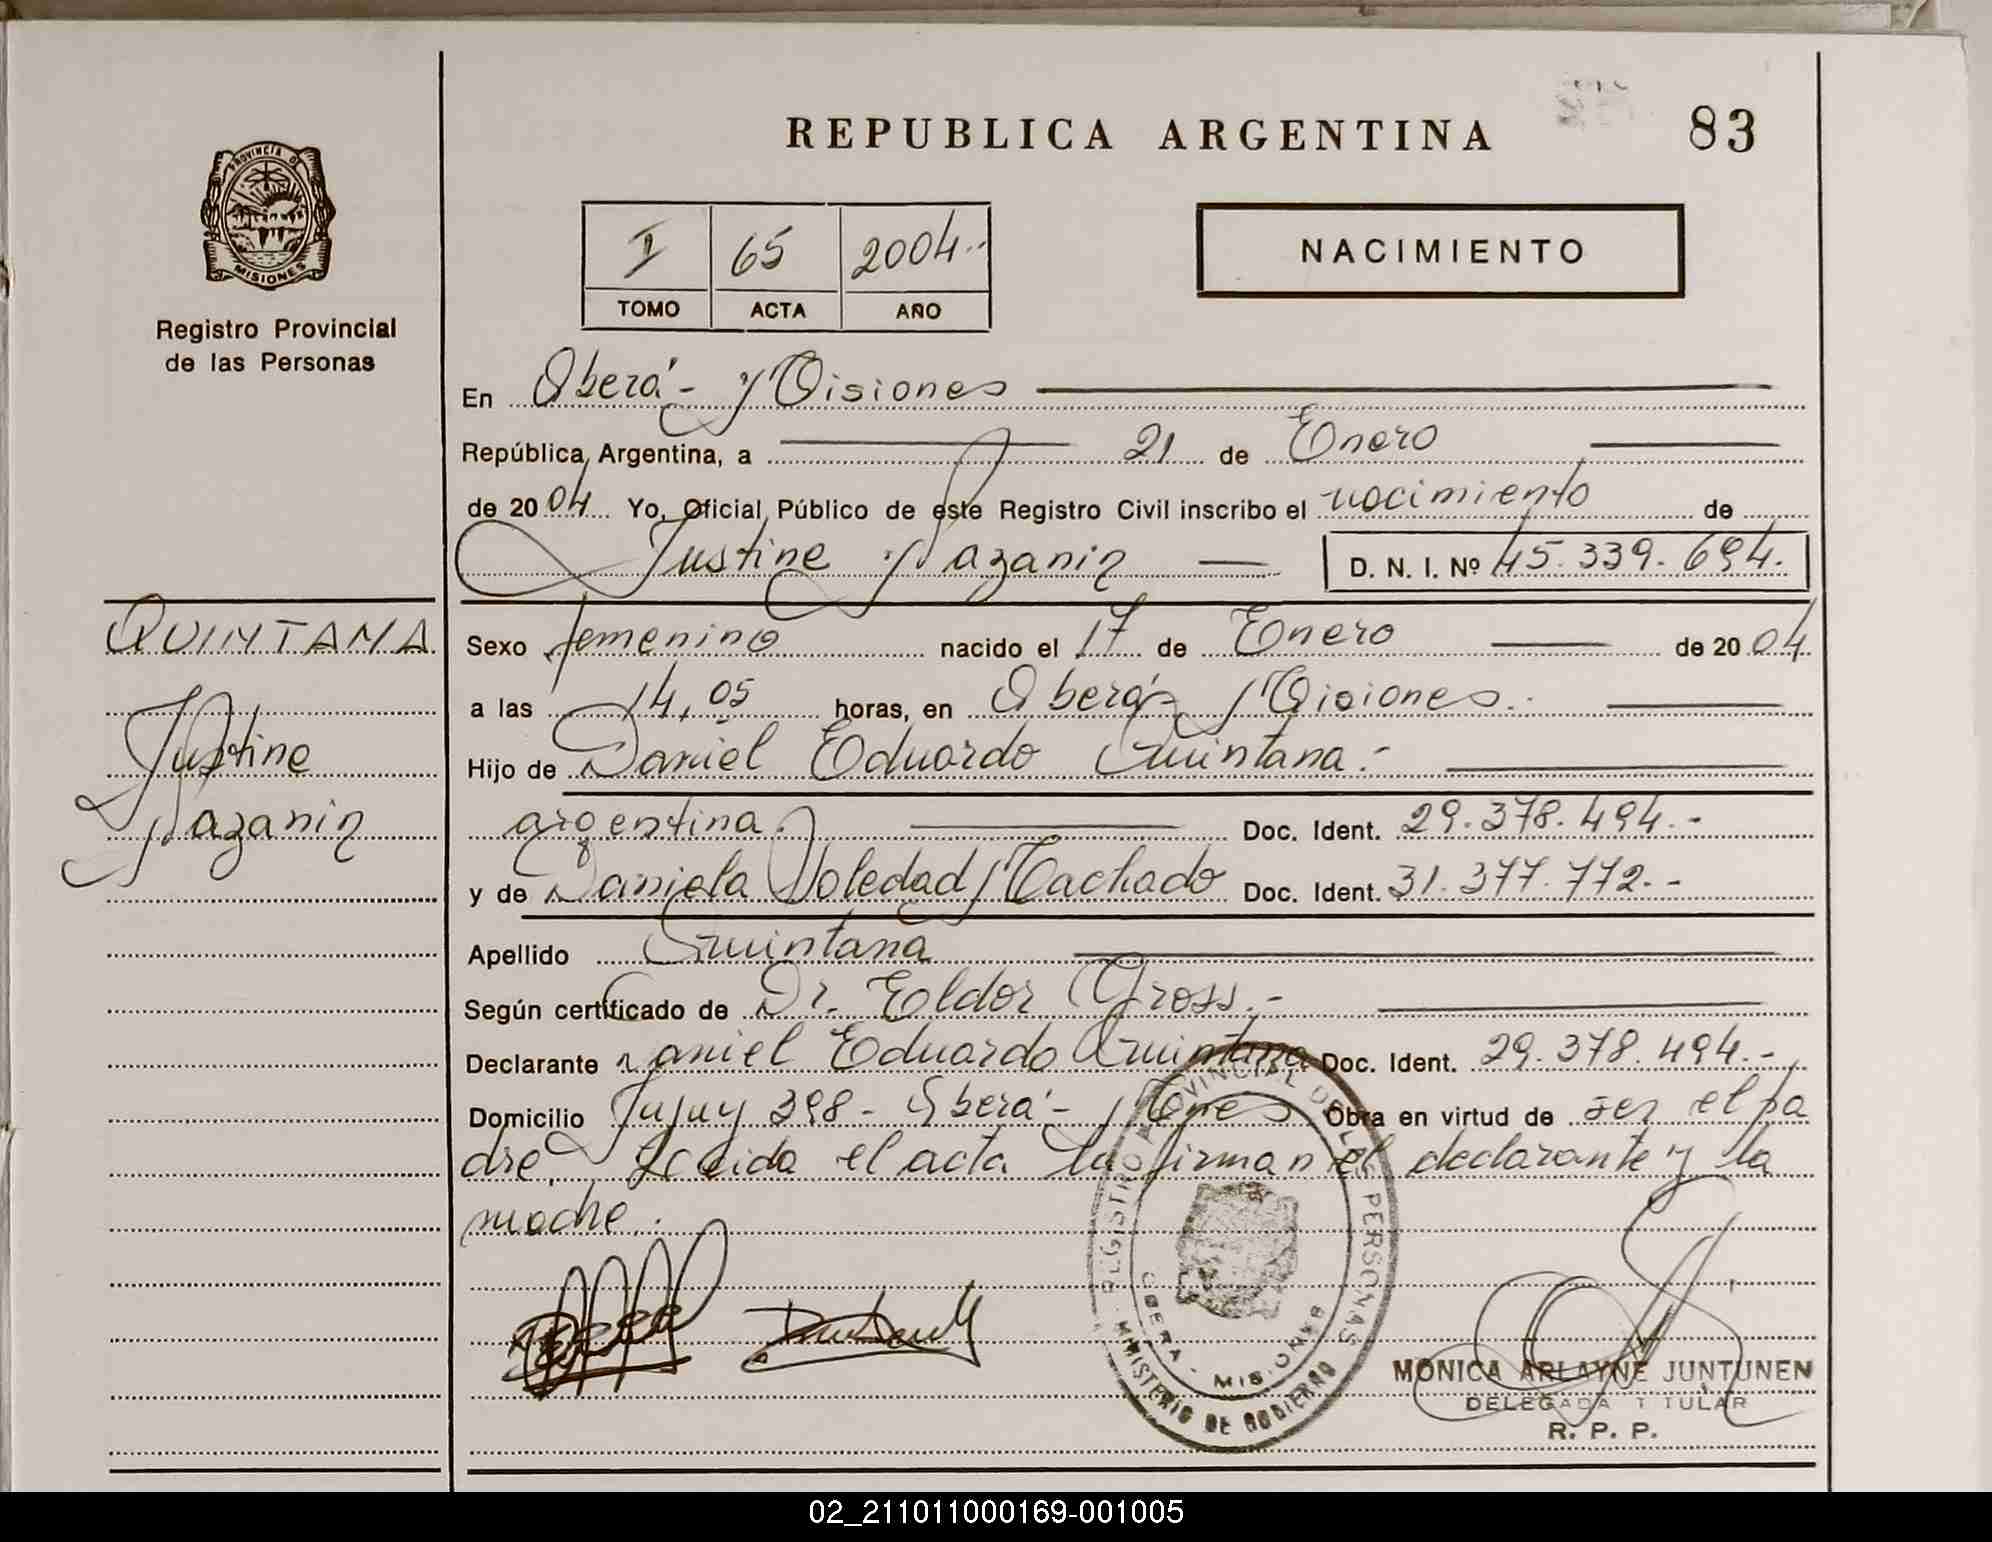 REPUBLICA ARGENTINA 83
PROVINCIA DE MISIONES
Registro Provincial
de las Personas
I 65 2004.-
TOMO ACTA AÑO
NACIMIENTO
En Oberá - Misiones
República Argentina, a 21 de Enero
de 2004 Yo, Oficial Público de este Registro Civil inscribo el nacimiento de
Justine Nazanin D. N. I. Nº 45.339.694.
QUINTANA
Justine
Nazanin
Sexo femenino nacido el 17 de Enero de 2004
a las 14,05 horas, en Oberá - Misiones.-
Hijo de Daniel Eduardo Quintana.-
argentina. Doc. Ident. 29.378.494.-
y de Daniela Soledad Machado Doc. Ident. 31.377.772.-
Apellido Quintana
Según certificado de Dr. Eldor Gross.-
Declarante Daniel Eduardo Quintana Doc. Ident. 29.378.494.-
Domicilio Jujuy 398 - Oberá - Mnes Obra en virtud de ser el pa
dre. Leida el acta la firman el declarante y la
madre.
REGISTRO PROVINCIAL DE LAS PERSONAS
OBERA - MISIONES
MINISTERIO DE GOBIERNO
MONICA ARLAYNE JUNTUNEN
DELEGADA TITULAR
R. P. P.
02_211011000169-001005